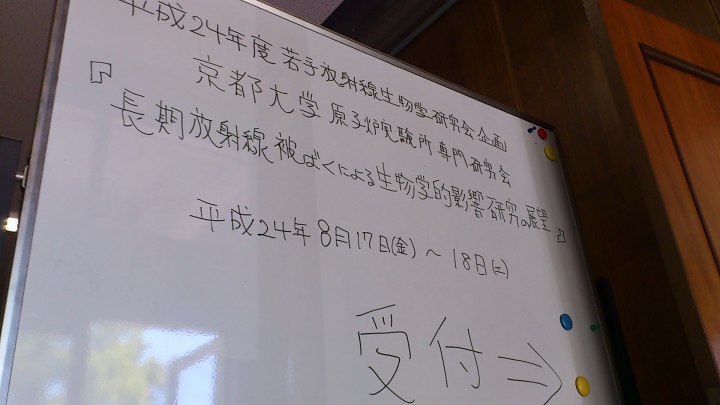 平成24年度 若手放射線生物学研究会企画
京都大学 原子炉実験所 専門研究会
『長期放射線被ばくによる生物学的影響研究の展望』
平成24年 8月17日(金) ～ 18日(土)
受付⇒